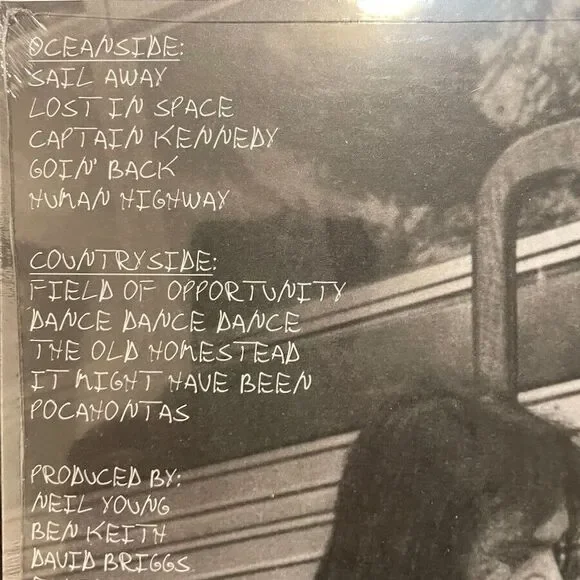 OCEANSIDE:
SAIL AWAY
LOST IN SPACE
CAPTAIN KENNEDY
GOIN' BACK
HUMAN HIGHWAY
COUNTRYSIDE:
FIELD OF OPPORTUNITY
DANCE DANCE DANCE
THE OLD HOMESTEAD
IT MIGHT HAVE BEEN
POCAHONTAS
PRODUCED BY:
NEIL YOUNG
BEN KEITH
DAVID BRIGGS